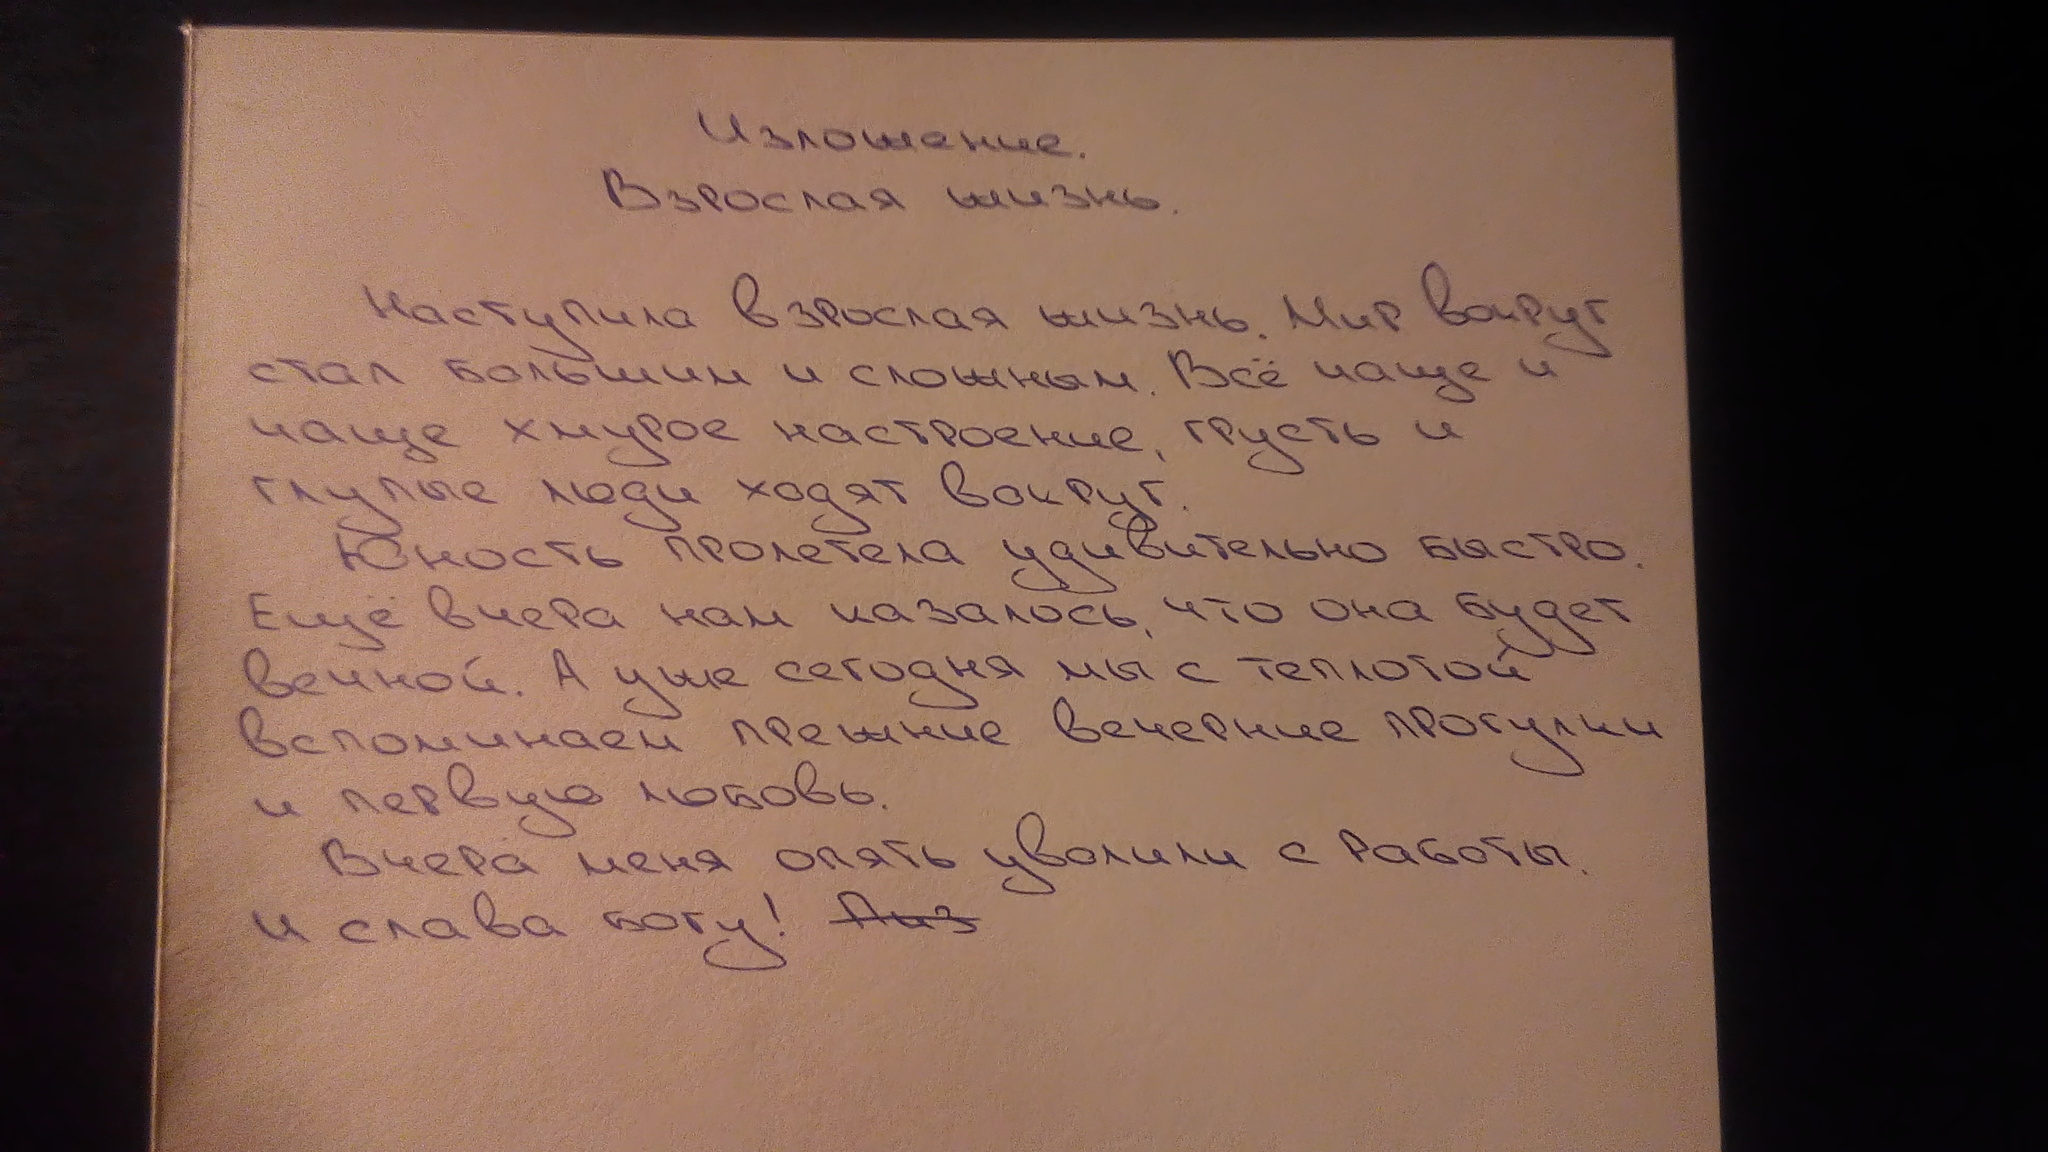 Изложение.
Взрослая жизнь.
Наступила взрослая жизнь. Мир вокруг
стал большим и сложным. Всё чаще и
чаще хмурое настроение, грусть и
глупые люди ходят вокруг.
Юность пролетела удивительно быстро.
Ещё вчера нам казалось, что она будет
вечной. А уже сегодня мы с теплотой
вспоминаем прежние вечерние прогулки
и первую любовь.
Вчера меня опять уволили с работы.
И слава богу!